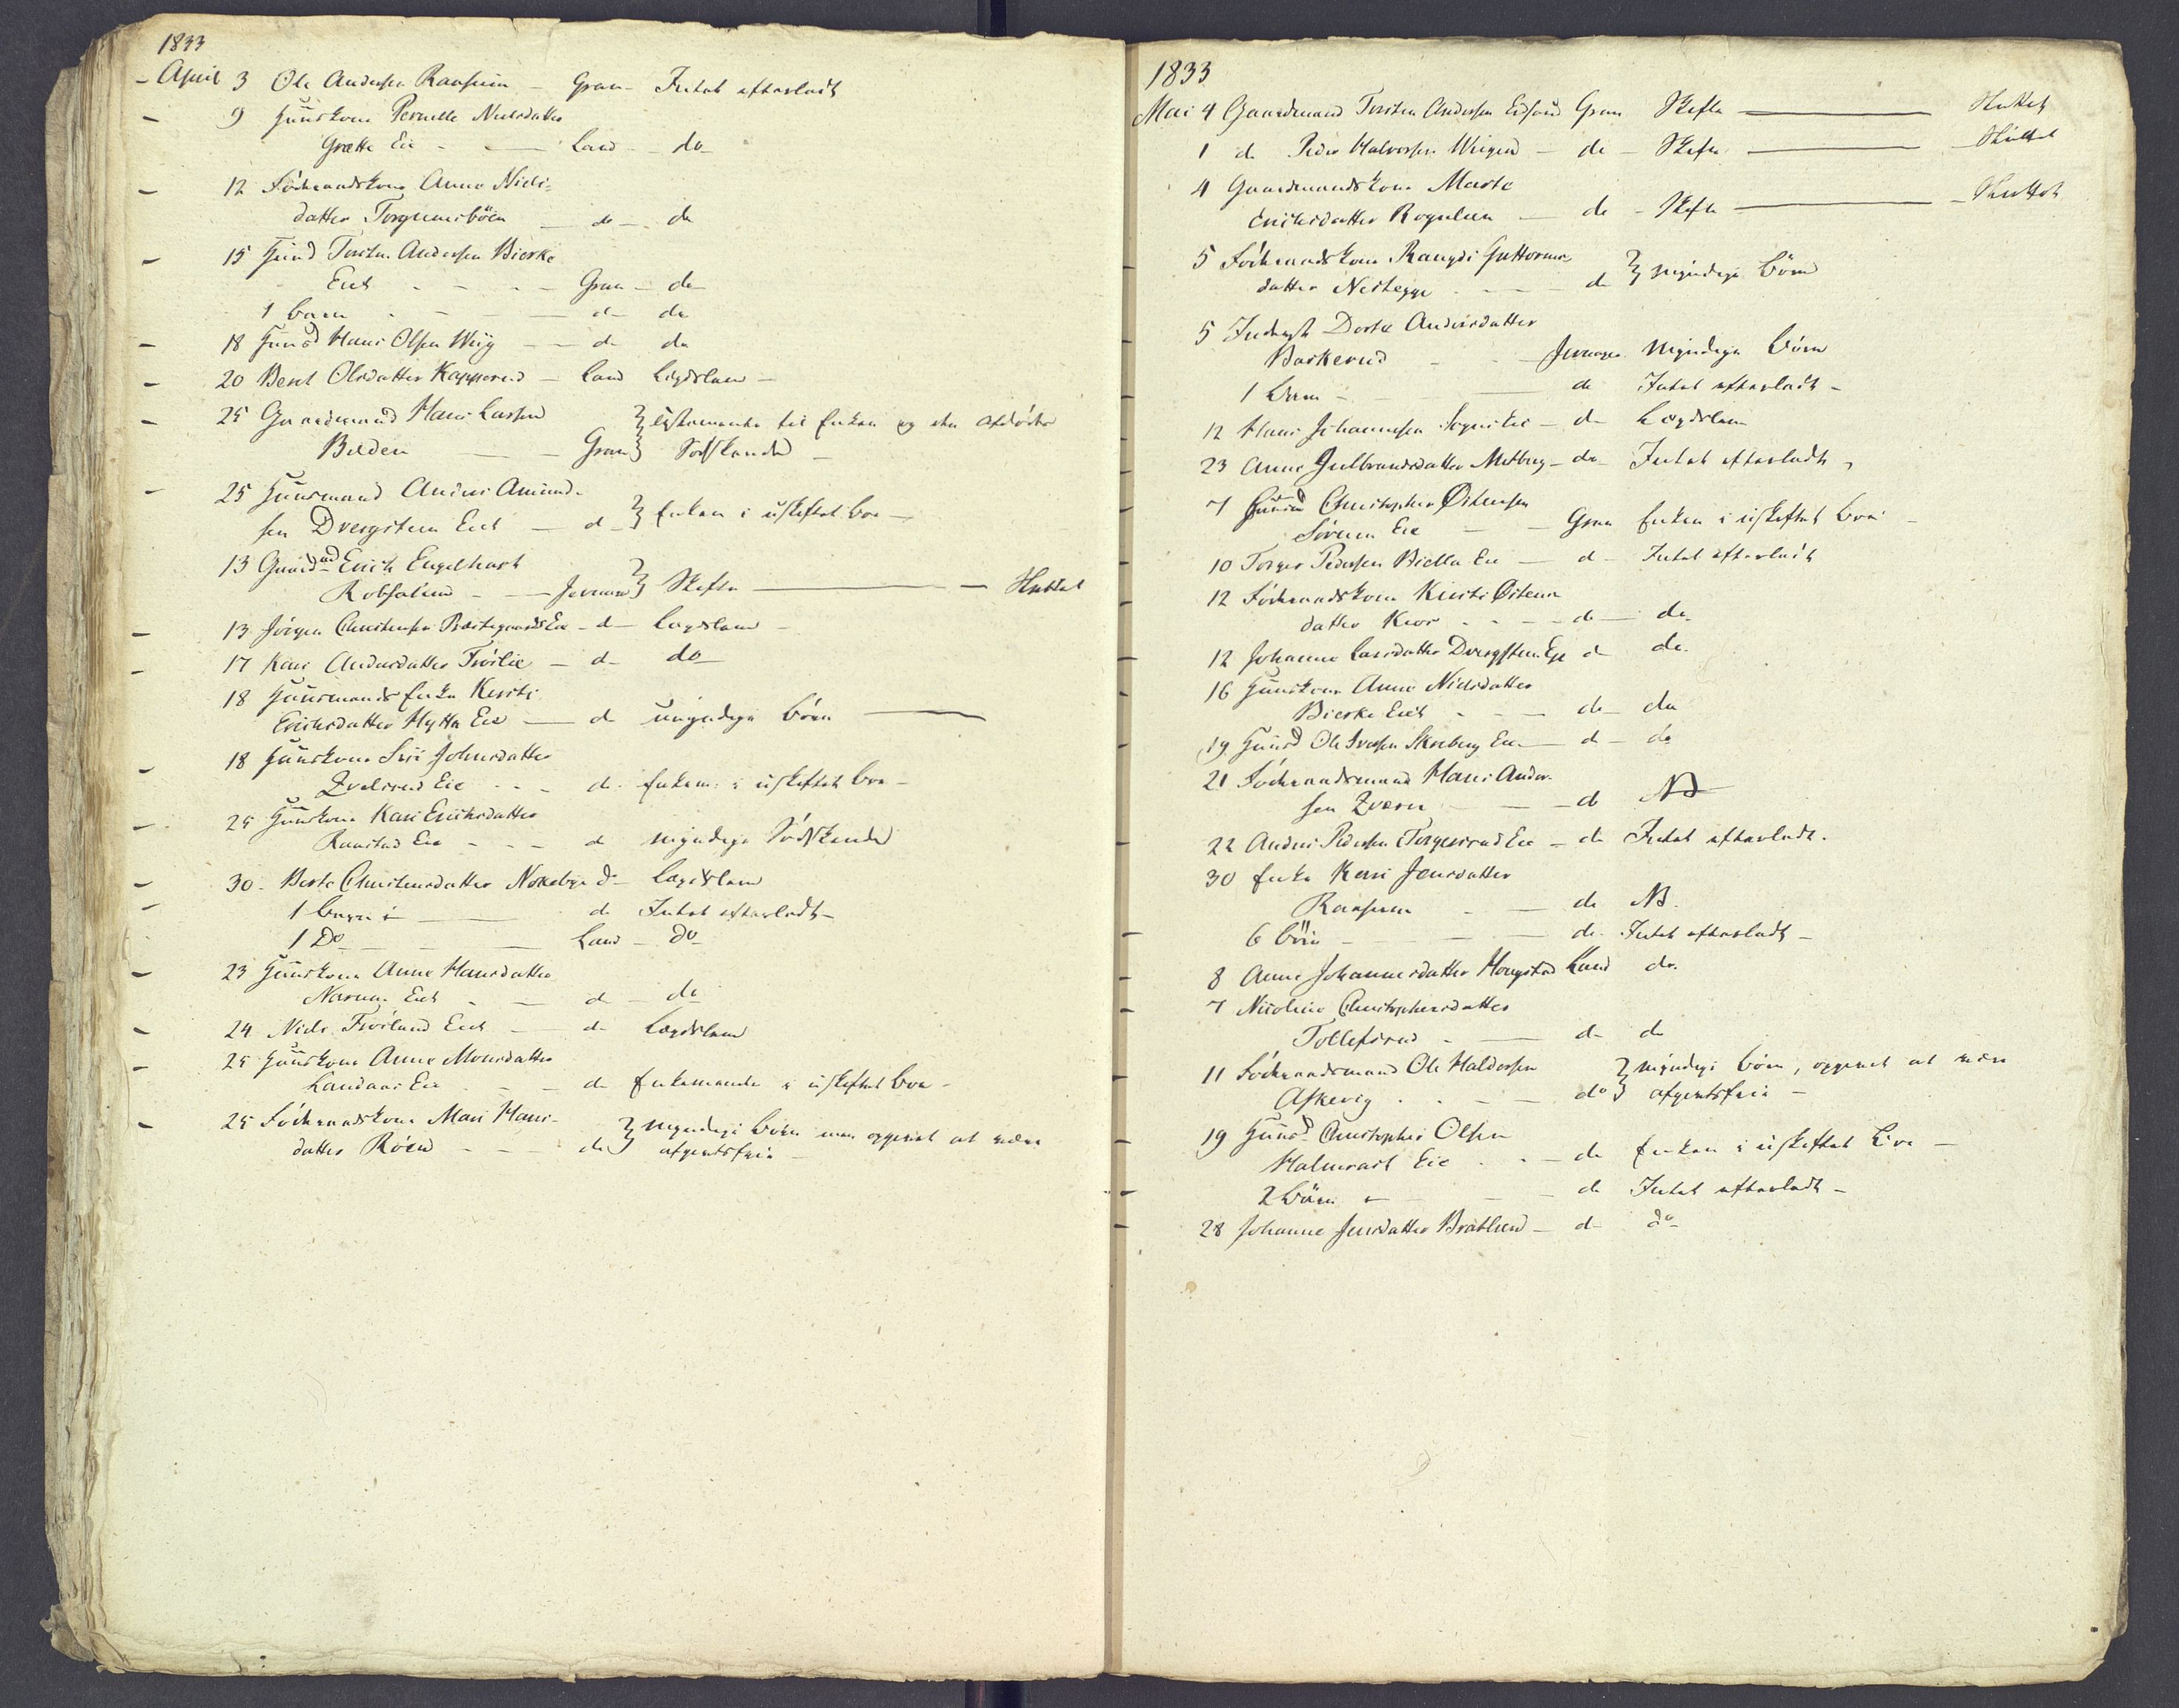 1833
April 3 Ole Andersen Raasum - Gran - Intet efterladt
9 Huuskone Pernille Nielsdatter
Grætte Eie - Land - do
12 Födraadskone Anne Niels-
datter Torgunsböen - do - do
15 Huusmd Torsten Andersen Bierke
Eiet - Gran - do
1 barn - d - do
18 Huusmd Hans Olsen Wiig - d - do
20 Berit Olsdatter Kapperud - Land Lægdslem -
25 Gaardmand Hans Larsen } Testamente til Enken og den afdödes
Bilden - Gran } Södskende -
25 Huusmand Anders Amund-
sen Dvergsten Eiet - d - } Enken i uskiftet boe -
13 Gaardmd Erich Engelhart
Robsalend - Jevnager } Skifte - Sluttet
13 Jörgen Christensen Præstegaards Eie - d - Lægdslem -
17 Kari Andersdatter Fröslie - d - do
18 Huusmands Enke Kersti
Erichsdatter Hytta Eie - d umyndige börn -
18 Huuskone Siri Johnsdatter
Hvalsrud Eie - do - Enkem: i uskiftet boe -
25 Huuskone Kari Erichsdatter
Raastad Eie - d myndige Södskende
30 - Berte Christensdatter Nokeleye d - Lægdslem
1 barn - do Intet efterladt -
1 Do - Land - do
23 Huuskone Anne Hansdatter
Narum Eiet - d - do
24 Niels Fröslund Eiet - do Lægdslem
25 Huuskone Anne Monsdatter
Landaas Eie - do Enkemanden i uskiftet boe -
25 Födraadskone Mari Hans-
datter Röen - do } myndige börn men opgivet at være
afgiftsfrie -
1833
Mai 4 Gaardmand Torsten Andersen Gran Skifte - Sluttet
1 do Peder Halvorsen - do - Skifte - Sluttet
4 Gaardmandskone Marte
Erichsdatter Rognlien - do - Skifte - Sluttet
5 Födraadskone Rangdi Guttorms-
datter Nestegge - do } myndige börn
5 Inderst Dorte Andersdatter
Barkerud - Jevnager Myndige börn
1 barn - do Intet efterladt -
12 Hans Johannesen Sogns Eie - do Lægdslem
23 Anne Gulbrandsdatter - do Intet efterladt
7 Huusmd Christopher Östensen
Sörum Eie - Gran Enken i uskiftet boe -
10 Torger Pedersen Bjella Eie - d - Intet efterladt
12 Födraadskone Kirsti Östens-
datter - do - do
12 Johanne Larsdatter Dvergsten Eje d do
16 Huuskone Anne Nielsdatter
Bierke Eiet - do - do
19 Huusmd Ole Iversen Skreberg Eie - d - do
21 Födraadsmand Hans Ander-
sen Hværn - do NB
22 Anders Pedersen Torgersrud Eie - do Intet efterladt.
30 Enke Kari Jensdatter
Raasum - do NB.
6 börn - do Intet efterladt -
8 Anne Johannesdatter Hougstad Land do.
7 Nicoline Christophersdatter
Tollefsrud - d - do
11 Födraadsmand Ole Haldorsen } myndige börn, opgivet at være
Askevig - do } afgiftsfrie -
19 Huusmd Christopher Olsen
Halmrast Eie - do Enken i uskiftet boe -
2 börn - do Intet efterladt -
28 Johanne Jensdatter Bratlund - d - do